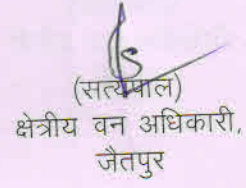 (सत्यपाल)
क्षेत्रीय वन अधिकारी,
जैतपुर